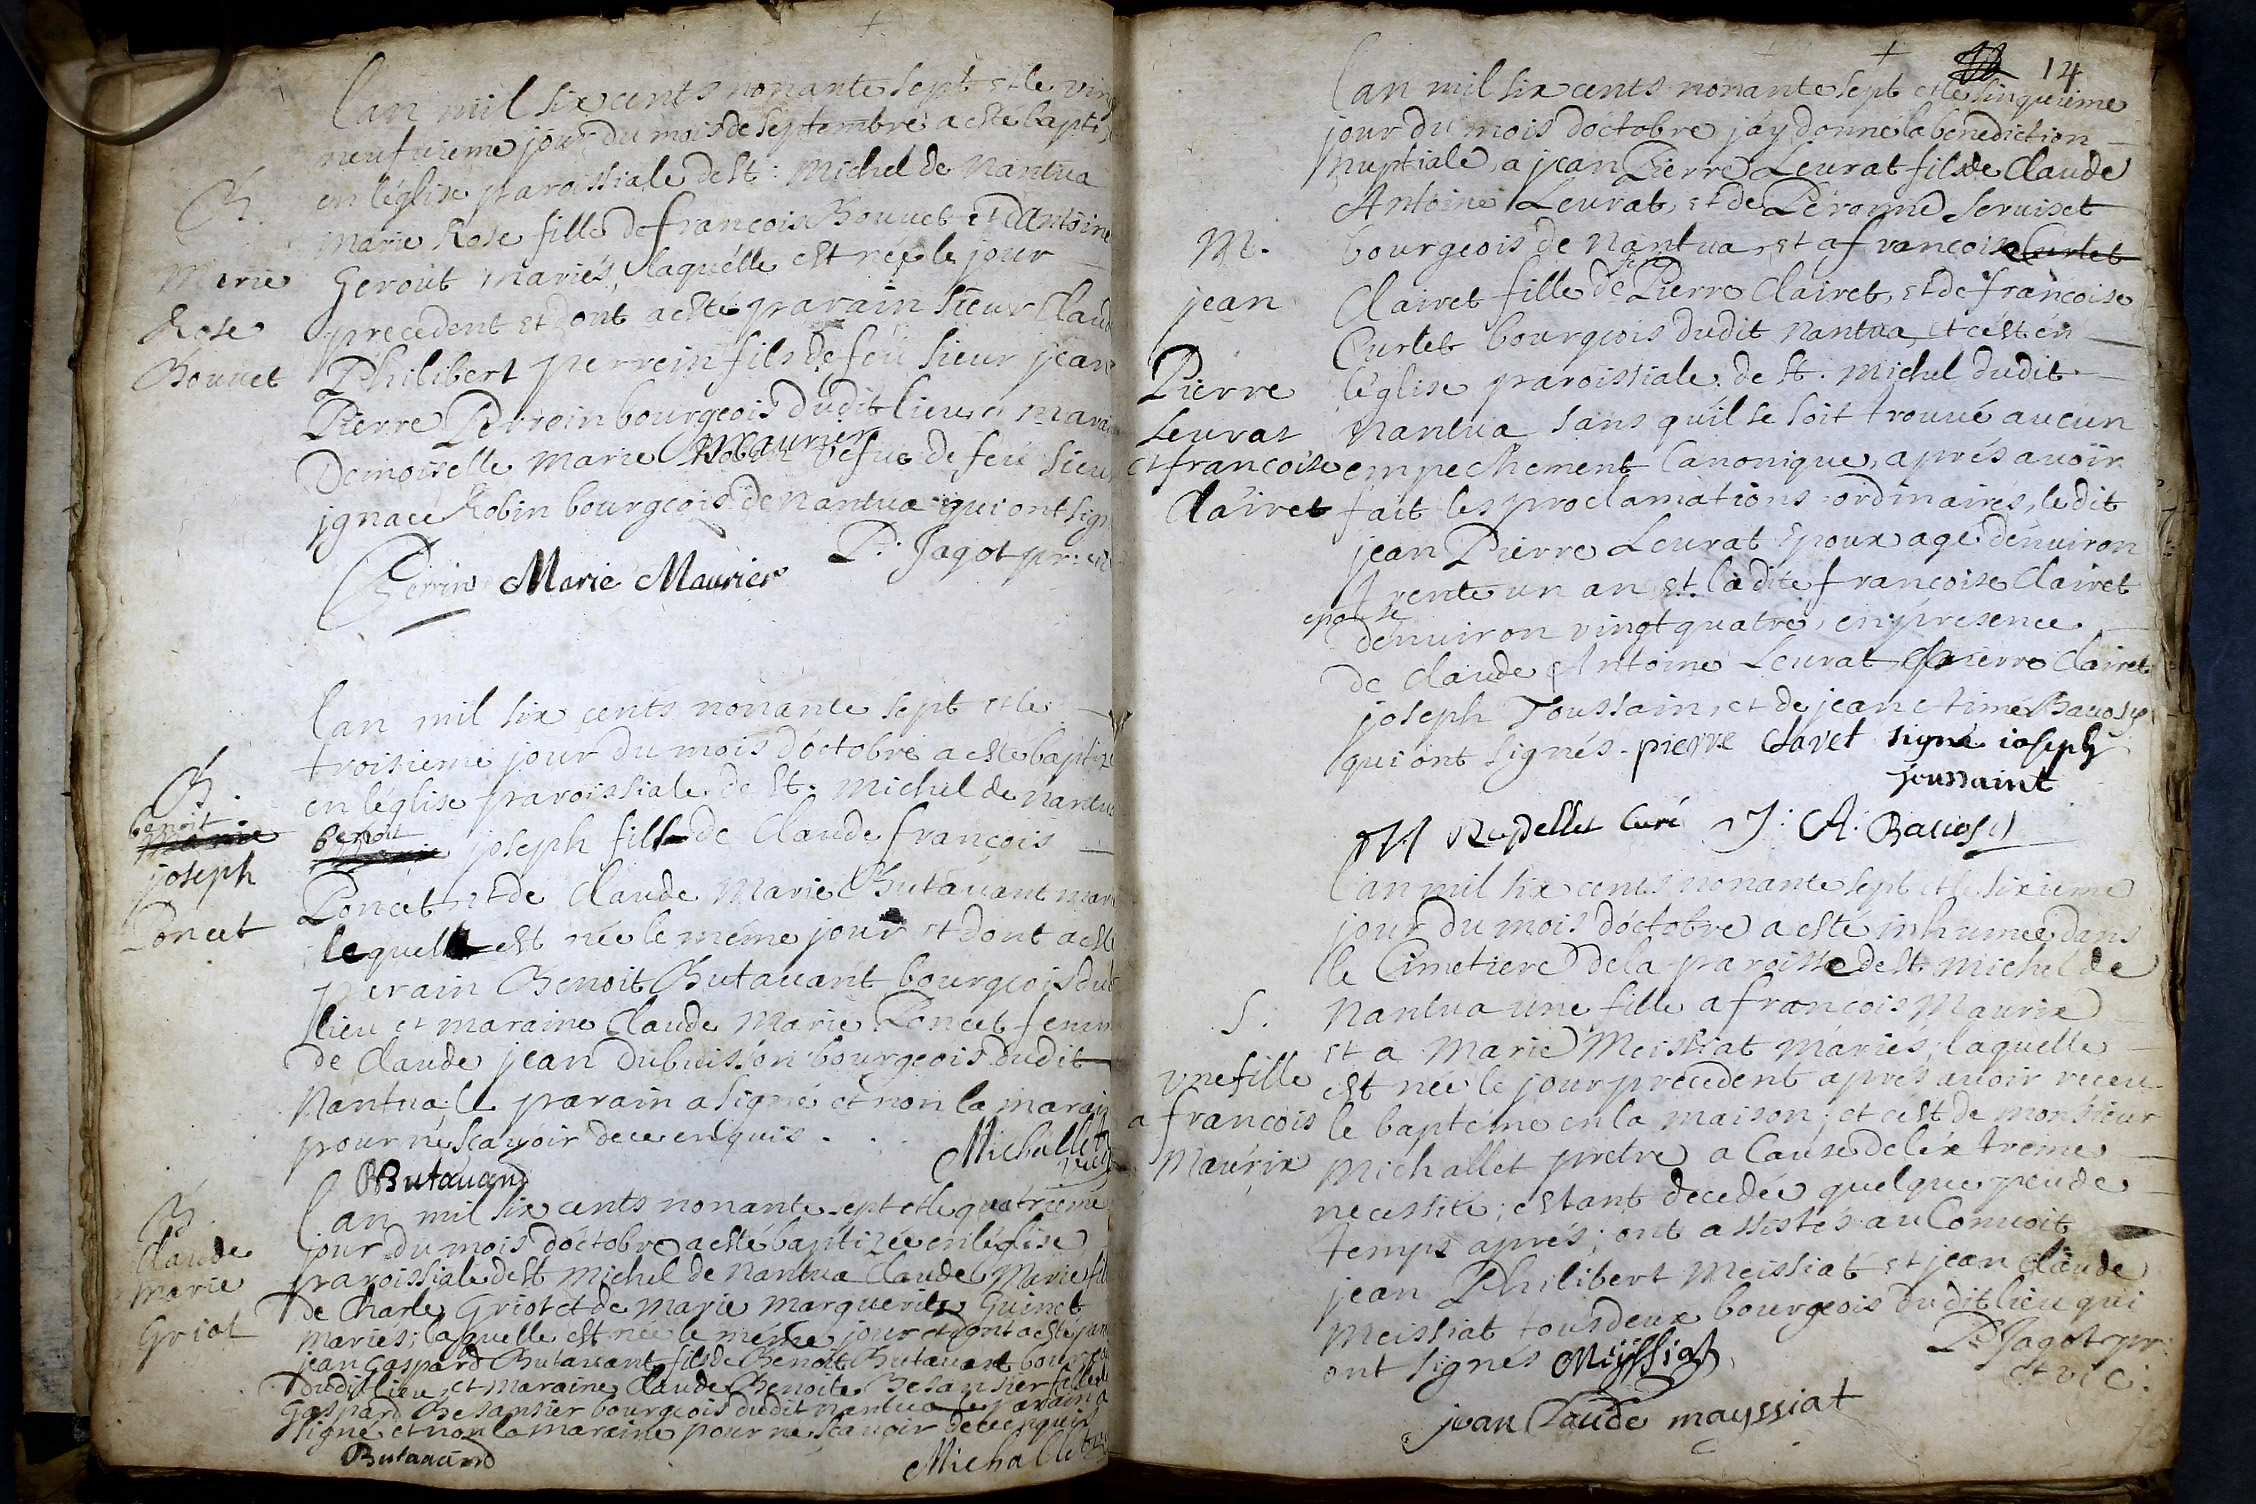 Lan mil six cents nonante sept et le ving
neufuieme jour du mois de septembre a esté bapti
en l'église paroissiale de St. Michel de Nantua
B.
Marie
Rose
Bouuet
Marie Rose fille de françois Bouuet et d'Antoine
Gerout mariés, laquelle est née le jour
precedent et dont a esté parain sieur Claud
Philibert perrein fils de feu sieur jean
Pierre Perrein bourgeois dudit lieu et marai
Demoiselle Marie Maurier vefue de feu sieu
jgnace Robin bourgeois de nantua qui ont sign
P. Jagot pr. et
Perrin Marie Maurier
Lan mil six cents nonante sept et le
troisieme jour du mois d'octobre a esté baptiz
en l'église paroissiale de St. Michel de Nantu
B.
benoit
joseph
Poncet
benoit joseph fils de Claude françois
Poncet et de Claude Marie Butauant mari
lequel est née le méme jour et dont a esté
parain Benoit Butauant bourgeois du
lieu et maraine Claude Marie Poncet femm
de Claude jean Dubuisson bourgeois dudit
Nantua. le parain a signé et non la marain
pour ne sçauoir de ce enquis.
Michallet
Butauand
B.
Claude
Marie
Griot
Lan mil six cents nonante sept et le quatrieme
jour du mois d'octobre a esté baptizée en léglise
paroissiale de St Michel de Nantua Claude Marie fill
de Charle Griot et de Marie Marguerite Guinet
mariés; laquelle est née le méme jour et dont a esté par
jean Gaspard Butauant fils de Benoit Butauant bourgeo
dudit lieu, et maraine Claude Benoite Besansier fille de
Gaspard Besansier bourgeois dudit nantua le parain a
signé et non la maraine pour ne sçauoir de ce enquis
Butauand Michallet
14
Lan mil six cents nonante sept et le sinquieme
jour du mois d'octobre j'ay donné la benediction
nuptiale, a jean Pierre Leurat fils de Claude
Antoine Leurat, et de Peronne Seruiset
M.
jean
Pierre
Leurat
et francoise
Clairet
bourgeois de Nantua, et a francoise Curlet
Clairet fille de Pierre Clairet, et de francoise
Curlet bourgeois dudit Nantua, et c'est en
l'église paroissiale de St. Michel dudit
Nantua sans qu'il se soit trouué aucun
empechement Canonique, aprés auoir
fait les proclamations ordinaires, ledit
jean Pierre Leurat epoux agé d'enuiron
trente un an, et ladite francoise Clairet
epouse
d'enuiron vingt quatre, en presence
de Claude Antoine Leurat, Pierre Clairet
joseph Toussain, et de jean Aimé Bauosy
qui ont signés. pierre claret signé ioseph
joussaint
Rudellet Curé J: A: Bauosy
Lan mil six cents nonante sept et le sixieme
jour du mois d'octobre a esté inhumée dans
le Cimetiere de la paroisse de St. Michel de
S.
une fille
a francois
Maurix
Nantua une fille a françois Maurix
et a Marie Meissiat mariés; laquelle
est née le jour precedent aprés auoir receu
le baptéme en la maison; et c'est de monsieur
Michallet pretre a Cause de l'éxtréme
necessité; estant decedée quelque peu de
temps aprés; ont assistés au Conuoit
jean Philibert Meissiat et jean Claude
Meissiat tous deux bourgeois dudit lieu qui
ont signés Meyssiat P. Jagot pr.
et vic.
jean Claude mayssiat